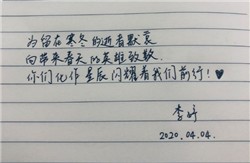 为留在寒冬的逝者默哀
向带来春天的英雄致敬
你们化作星辰闪耀着我们前行！♥
李婷
2020.04.04.